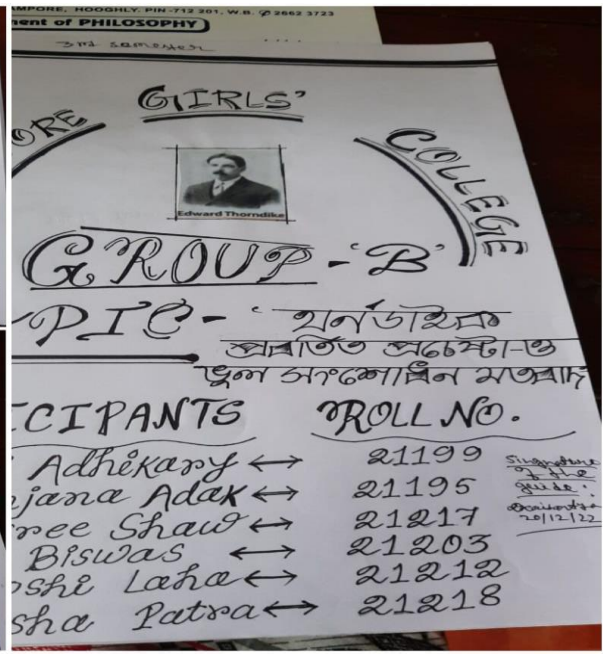 AMPORE, HOOGHLY. PIN-712 201, W.B. ✆ 2662 3723
ment of PHILOSOPHY
3rd semester
ORE GIRLS' COLLEGE
Edward Thorndike
GROUP-'B'
PIC- ' থর্নডাইক
প্রবর্তিত প্রচেষ্টা-ও
ভুল সংশোধন মতবাদ
CIPANTS ROLL NO.
Adhikary ↔ 21199
jana Adak ↔ 21195
ree Shaw ↔ 21217
Biswas ↔ 21203
shi Laha ↔ 21212
sha Patra ↔ 21218
Singnature
of the
guide:
20/12/22